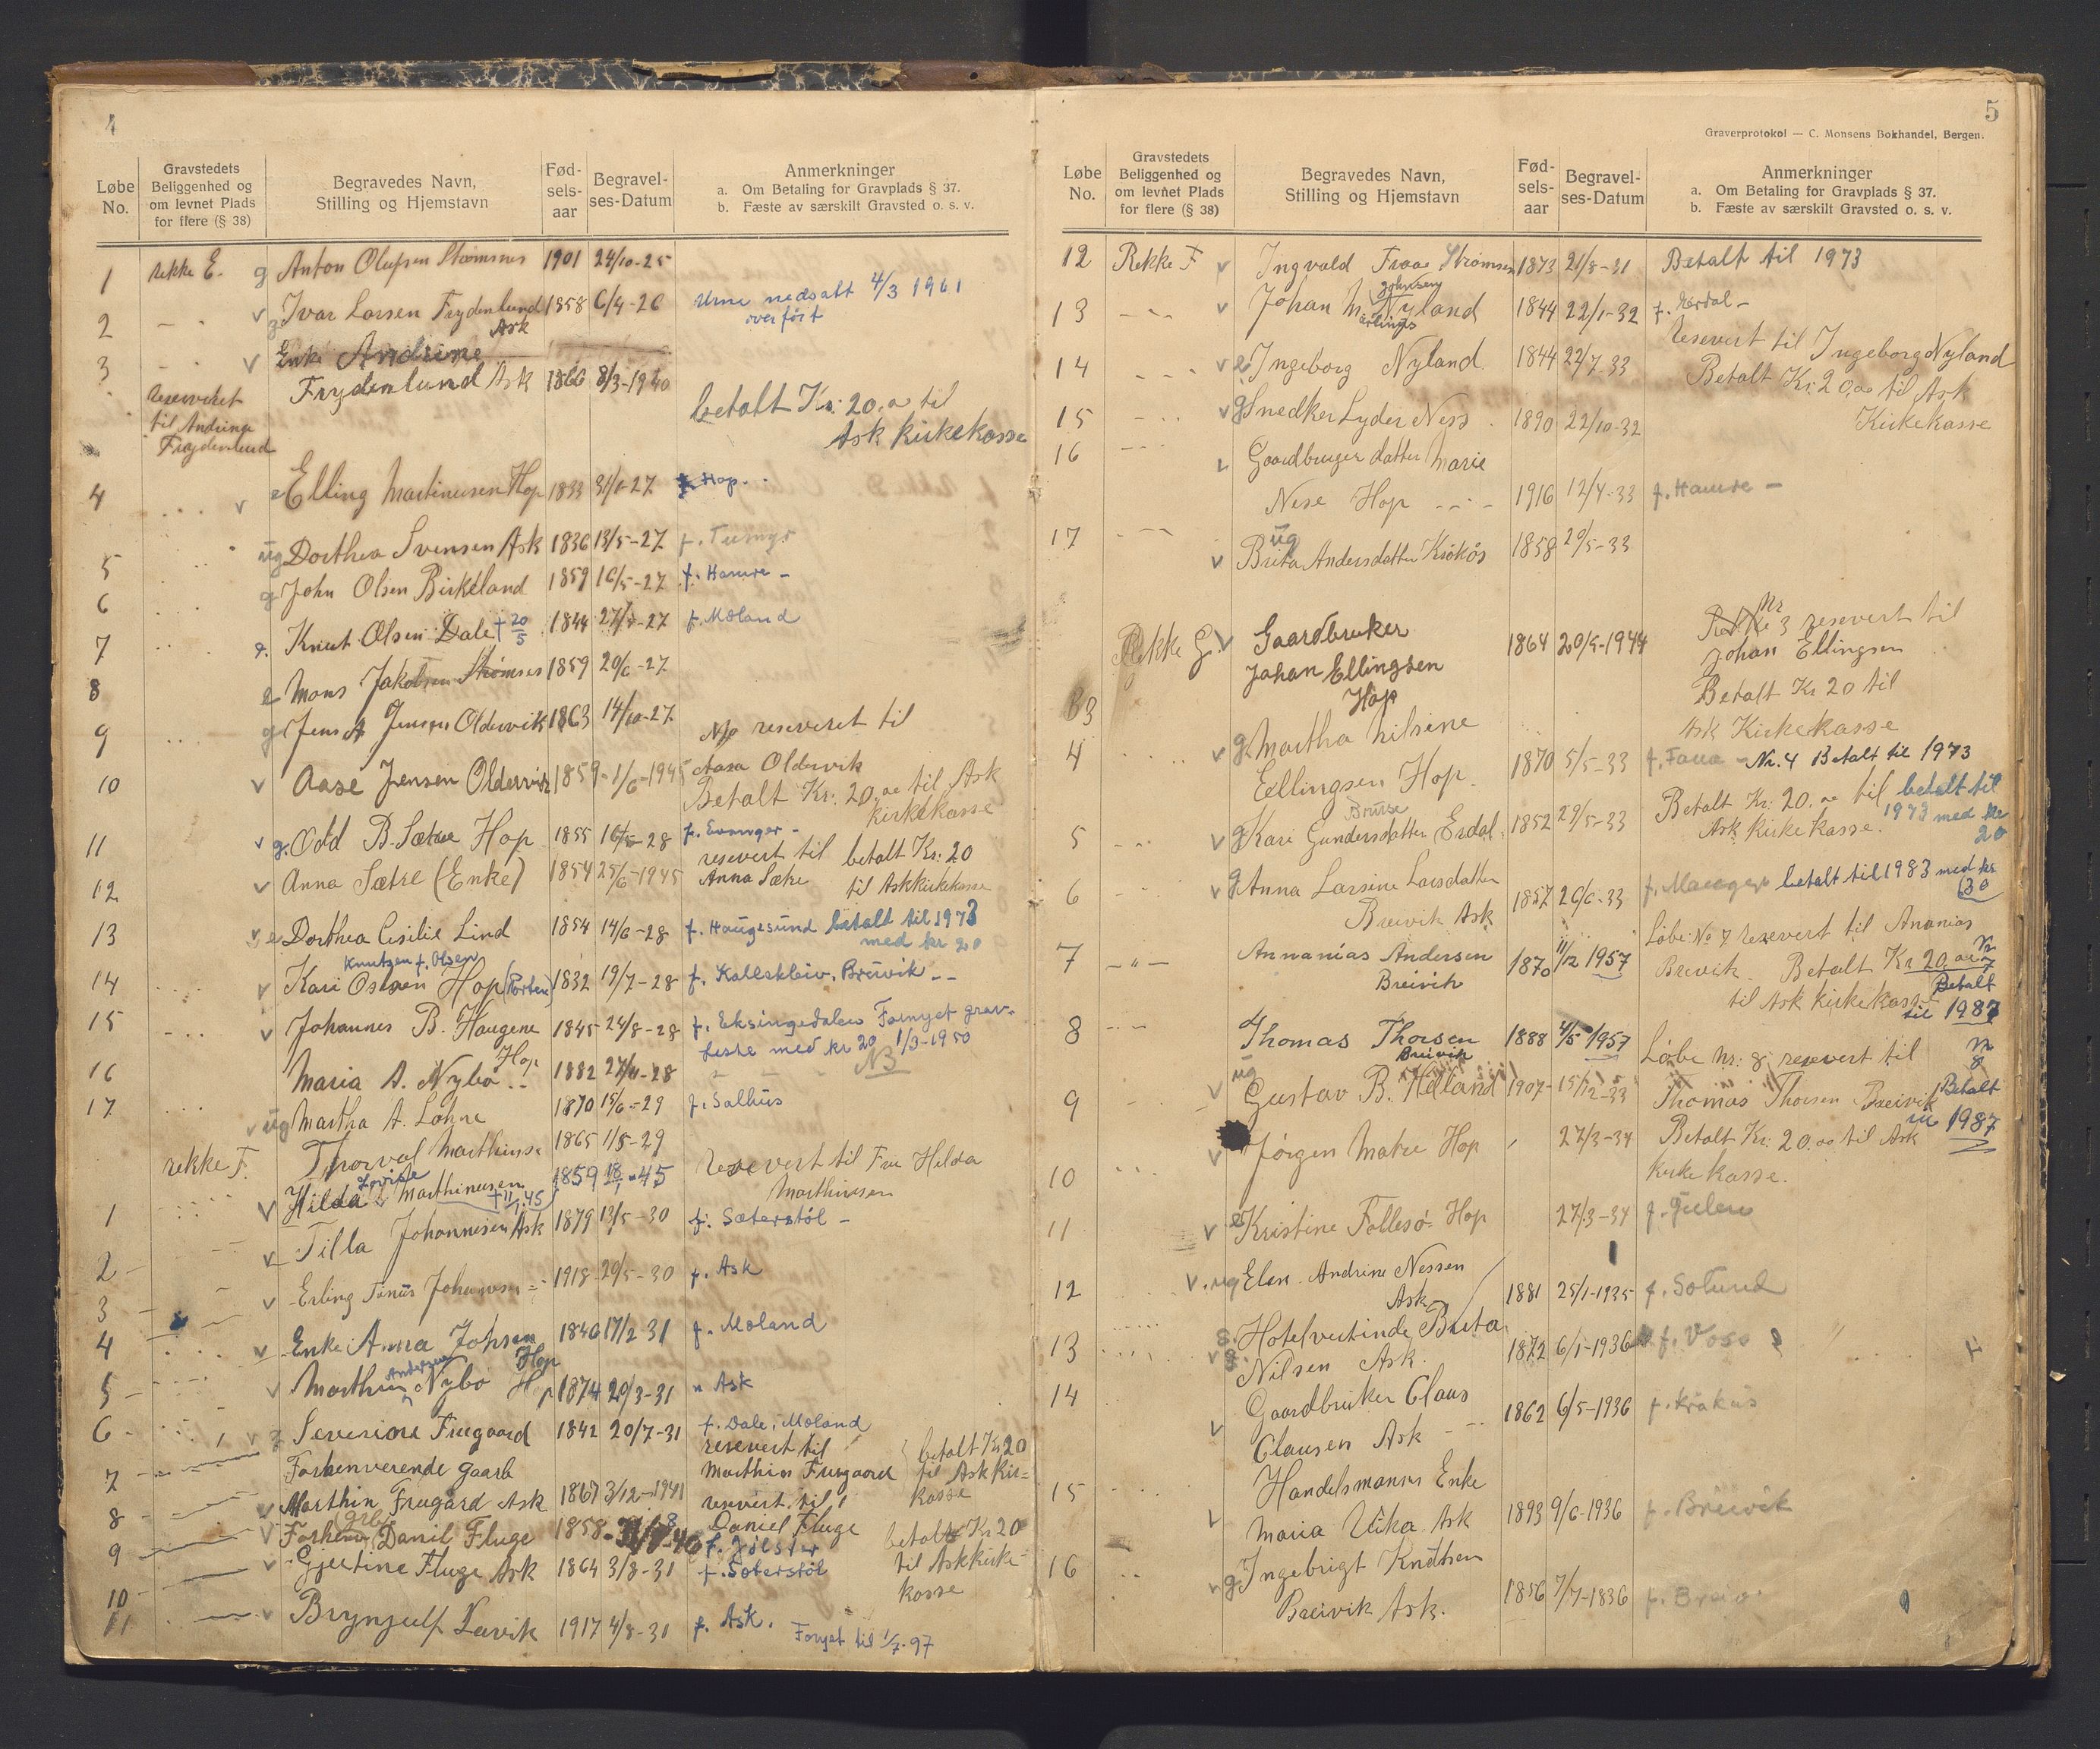 4
Løbe No.
Gravstedets Beliggenhed og om levnet Plads for flere (§ 38)
Begravedes Navn, Stilling og Hjemstavn
Fød-sels-aar
Begravel-ses-Datum
Anmerkninger
a. Om Betaling for Gravplads § 37.
b. Fæste av særskilt Gravsted o. s. v.
1 rekke E. g Anton Olufsen Strømsnes 1901 24/10-25
2 v g Ivar Larsen Frydenlund Ask 1858 6/4-26 Urne nedsatt 4/3 1961
overført
3 v Enke Andrine
Frydenlund Ask 1866 8/3-1940
reserveret
til Andrine
Frydenlund
betalt Kr: 20.00 til
Ask kirkekasse
4 v e Elling Martinusen Hop 1833 31/1-27 f. Hop.
5 ug Dorthea Svensen Ask 1836 13/5-27
6 g John Olsen Birkeland 1859 16/5-27 f. Hamre -
7 e. Knut Olsen Dale † 20/5 1844 27/5-27 f. Meland
8 e Mons Jakobsen Strømsnes 1859 20/6-27
9 g Jens A Jensen Oldervik 1863 14/10-27 No reserveret til
10 v Aase Jensen Oldervik 1859 - 1/6-1945 Aasa Oldervik
Betalt Kr: 20.00 til Ask
kirkekasse
11 v g. Odd B. Sætre Hop 1855 16/5-28 f. Evanger -
12 v Anna Sætre (Enke) 1854 25/6-1945 reservert til betalt Kr: 20
Anna Sætre til Askkirkekasse
13 v e Dorthea Cesilie Lind 1854 14/6-28 f. Haugesund betalt til 1973
med kr 20
Knutsen f. Olsen
14 v Kari Olsen Hop (Porten) 1832 19/7-28 f. Kallekleiv. Breivik --
15 v Johannes B. Haugene Hop 1845 24/8-28 f. Eksingedalen Fornyet grav-
feste med kr 20 1/3-1950
16 Maria A. Nybø 1882 27/11-28 NB
17 v ug Martha A. Lohne 1870 15/6-29 f. Salhus
rekke F. Thorval Marthinsen 1865 1/8-29 reservert til Fru Hilda
Marthinsen
1 v Hilda Lovise Marthinusen † 11/1.45 1859 18/1-45
2 v Tilla Johannesen Ask 1879 13/5-30 f. Sæterstøl -
3 v Erling Tonus Johannesen 1918 29/5-30 f. Ask
4 v Enke Anna Johnsen Hop 1840 17/2-31 f. Meland
5 v Marthin Andersen Nybø Hop 1874 20/3-31 " Ask
6 v g Severine Fruegaard 1842 20/7-31 f. Dale, Meland
7 Forhenverende Gaardb
8 v Marthin Frugård Ask 1867 3/12-1941 reservert til
Marthin Frugaard betalt Kr 20
til Ask Kir=
kasse
9 v Forhenv Grbr Danil Fluge 1858 reservert til
Daniel Fluge
f. Jølster
betalt Kr 20
til Ask kirke-
kasse
10 v Gjertine Fluge Ask 1864 3/8-31 f. Seterstøl
11 v Brynjulf Lervik 1917 4/8-31 f. Ask.
Fornyet til 1/7-97
5
Graverprotokol — C. Monsens Bokhandel, Bergen.
Løbe No.
Gravstedets Beliggenhed og om levnet Plads for flere (§ 38)
Begravedes Navn, Stilling og Hjemstavn
Fød-sels-aar
Begravel-ses-Datum
Anmerkninger
a. Om Betaling for Gravplads § 37.
b. Fæste av særskilt Gravsted o. s. v.
12 Rekke F v Ingvald Strømsnes 1873 21/8-31 Betalt til 1973
13 v Johan M. Johnsen Nyland 1844 22/1-32
reservert til Ingeborg Nyland
14 v e Ingeborg Nyland 1844 22/7-33 Betalt Kr: 20.00 til Ask
Kirkekasse
15 v g Snedker Lyder Ness 1890 22/10-32
16 v Gaardbruger datter Marie
Nese Hop 1916 12/4-33 f. Hamre -
17 v ug Brita Andersdatter Krokås 1858 29/5-33
Rekke G. v Gaardbruker
Johan Ellingsen
Hop 1864 20/9-1944 Nr 3 reservert til
Johan Ellingsen
3 Betalt Kr 20 til
Ask Kirkekasse
4 v g. Martha Nilsine
Ellingsen Hop. 1870 5/5-33 f. Fana - Nr. 4 Betalt til 1973
5 v g Kari Gundersdatter Erdal 1852 29/5-33 Betalt Kr: 20.00 til
Ask kirkekasse. betalt til
1973 med kr
20
6 v g Anna Larsine Larsdatter
Breivik Ask 1857 26/6-33 f. Manger betalt til 1983 med kr
30
7 Annanias Andersen
Breivik 1870 11/12 1957 Løbe No 7 reservert til Ananias
Breivik. Betalt Kr 20.00
til Ask kirkekasse
Nr 7 Betalt
til 1987
8 Thomas Thorsen
Breivik 1888 4/5 1957 Løbe Nr: 8 reservert til
Thomas Thorsen Breivik
Betalt Kr: 20.00 til Ask
kirkekasse.
Nr 8 Betalt
til 1987
9 v ug Gustav B. Helland 1907 - 15/12-33
10 v Jørgen Matre Hop 27/3-34
11 v e Kristine Follesø Hop 27/3-34 f. Gulen
12 v. ug Elen Andrine Nessen
Ask 1881 25/1-1935 f. Solund
13 v g. Hotelvertinde Brita
Nilsen Ask. 1872 6/1-1936 f. Voss
14 v Gaardbruker Claus
Clausen Ask 1862 6/5-1936 f. Kråkås
15 v Handelsmanns Enke
Maria Ask 1893 9/6-1936 f. Breivik
16 v g Ingebrigt Knutsen
Breivik Ask. 1856 7/7-1836 f. Breiv